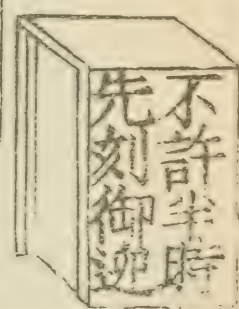 不許半時
先刻御迯